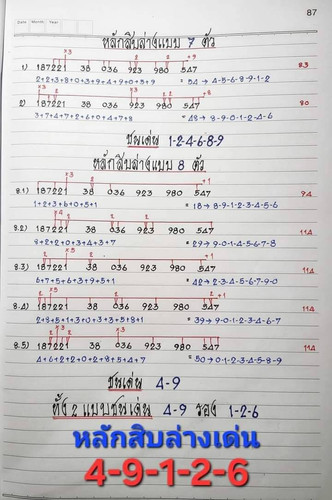 87
Date Month Year
หลักสิบล่างแบบ 7 ตัว
×3 2 2 +9
1) 187221 38 036 923 980 547 83
2+2+3+8+0+3+9+4+9+0+5+9 = 54 → 4-5-6-8-9-1-2
2) 187221 38 036 923 980 547 80
3+7+4+7+2+6+0+4+7+8 = 48 → 8-9-0-1-2-4-6
ชนเด่น 1-2-4-6-8-9
หลักสิบล่างแบบ 8 ตัว
8.1) 187221 38 036 923 980 547 94
1+2+3+6+0+5+1 = 18 → 8-9-1-2-3-4-5-6
8.2) 187221 38 036 923 980 547 114
8+2+2+0+3+4+3+7 = 29 → 9-0-1-4-5-6-7-8
8.3) 187221 38 036 923 980 547 114
6+7+5+6+3+9+5+1 = 42 → 2-3-4-5-6-7-9-0
8.4) 187221 38 036 923 980 547 114
2+8+5+1+3+0+3+3+5+8+1 = 39 → 9-0-1-2-3-4-6-7
8.5) 187221 38 036 923 980 547 114
4+6+2+2+0+2+8+5+4+7 = 50 → 0-1-2-3-4-5-8-9
ชนเด่น 4-9
ทั้ง 2 แบบชนเด่น 4-9 รอง 1-2-6
หลักสิบล่างเด่น
4-9-1-2-6